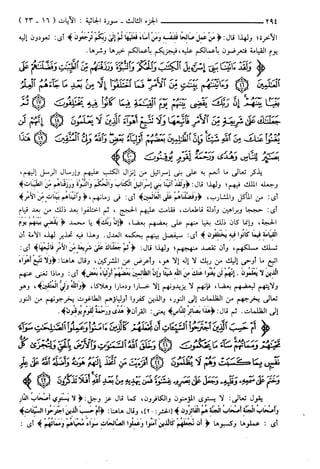 ٢٩٤ الجزء الثالث ـ سورة الجاثية : الآيات ( ١٦ ـ ٢٣ )
الآخرة؛ ولهذا قال: ﴿ مَنْ عَمِلَ صَالِحًا فَلِنَفْسِهِ وَمَنْ أَسَاءَ فَعَلَيْهَا ثُمَّ إِلَى رَبِّكُمْ تُرْجَعُونَ ﴾ أي: تعودون إليه
يوم القيامة فتعرضون بأعمالكم عليه، فيجزيكم بأعمالكم خيرها وشرها.
وَلَقَدْ آتَيْنَا بَنِي إِسْرَائِيلَ الْكِتَابَ وَالْحُكْمَ وَالنُّبُوَّةَ وَرَزَقْنَاهُم مِّنَ الطَّيِّبَاتِ وَفَضَّلْنَاهُمْ عَلَى
الْعَالَمِينَ ﴿١٦﴾ وَآتَيْنَاهُم بَيِّنَاتٍ مِّنَ الْأَمْرِ فَمَا اخْتَلَفُوا إِلَّا مِن بَعْدِ مَا جَاءَهُمُ الْعِلْمُ
بَغْيًا بَيْنَهُمْ إِنَّ رَبَّكَ يَقْضِي بَيْنَهُمْ يَوْمَ الْقِيَامَةِ فِيمَا كَانُوا فِيهِ يَخْتَلِفُونَ ﴿١٧﴾ ثُمَّ
جَعَلْنَاكَ عَلَى شَرِيعَةٍ مِّنَ الْأَمْرِ فَاتَّبِعْهَا وَلَا تَتَّبِعْ أَهْوَاءَ الَّذِينَ لَا يَعْلَمُونَ ﴿١٨﴾ إِنَّهُمْ لَن
يُغْنُوا عَنكَ مِنَ اللَّهِ شَيْئًا وَإِنَّ الظَّالِمِينَ بَعْضُهُمْ أَوْلِيَاءُ بَعْضٍ وَاللَّهُ وَلِيُّ الْمُتَّقِينَ ﴿١٩﴾ هَٰذَا
بَصَائِرُ لِلنَّاسِ وَهُدًى وَرَحْمَةٌ لِّقَوْمٍ يُوقِنُونَ ﴿٢٠﴾
يذكر تعالى ما أنعم به على بني إسرائيل من إنزال الكتب عليهم وإرسال الرسل إليهم،
وجعله الملك فيهم؛ ولهذا قال: ﴿ وَلَقَدْ آتَيْنَا بَنِي إِسْرَائِيلَ الْكِتَابَ وَالْحُكْمَ وَالنُّبُوَّةَ وَرَزَقْنَاهُم مِّنَ الطَّيِّبَاتِ ﴾
أي: من المآكل والمشارب، ﴿ وَفَضَّلْنَاهُمْ عَلَى الْعَالَمِينَ ﴾ أي: في زمانهم، ﴿ وَآتَيْنَاهُم بَيِّنَاتٍ مِّنَ الْأَمْرِ ﴾
أي: حججا وبراهين وأدلة قاطعات، فقامت عليهم الحجج ، ثم اختلفوا بعد ذلك من بعد قيام
الحجة، وإنما كان ذلك بغيا منهم على بعضهم بعضا، ﴿ إِنَّ رَبَّكَ ﴾ يا محمد ﴿ يَقْضِي بَيْنَهُمْ يَوْمَ
الْقِيَامَةِ فِيمَا كَانُوا فِيهِ يَخْتَلِفُونَ ﴾ أي: سيفصل بينهم بحكمه العدل. وهذا فيه تحذير لهذه الأمة أن
تسلك مسلكهم، وأن تقصد منهجهم؛ ولهذا قال: ﴿ ثُمَّ جَعَلْنَاكَ عَلَى شَرِيعَةٍ مِّنَ الْأَمْرِ فَاتَّبِعْهَا ﴾ أي:
اتبع ما أوحي إليك من ربك لا إله إلا هو، وأعرض عن المشركين، وقال هاهنا: ﴿ وَلَا تَتَّبِعْ أَهْوَاءَ
الَّذِينَ لَا يَعْلَمُونَ . إِنَّهُمْ لَن يُغْنُوا عَنكَ مِنَ اللَّهِ شَيْئًا وَإِنَّ الظَّالِمِينَ بَعْضُهُمْ أَوْلِيَاءُ بَعْضٍ ﴾ أي: وماذا تغني عنهم
ولايتهم لبعضهم بعضا، فإنهم لا يزيدونهم إلا خسارا ودمارا وهلاكا، ﴿ وَاللَّهُ وَلِيُّ الْمُتَّقِينَ ﴾، وهو
تعالى يخرجهم من الظلمات إلى النور، والذين كفروا أولياؤهم الطاغوت يخرجونهم من النور
إلى الظلمات. ثم قال: ﴿ هَٰذَا بَصَائِرُ لِلنَّاسِ ﴾ يعني: القرآن ﴿ وَهُدًى وَرَحْمَةٌ لِّقَوْمٍ يُوقِنُونَ ﴾.
أَمْ حَسِبَ الَّذِينَ اجْتَرَحُوا السَّيِّئَاتِ أَن نَّجْعَلَهُمْ كَالَّذِينَ آمَنُوا وَعَمِلُوا الصَّالِحَاتِ سَوَاءً
مَّحْيَاهُمْ وَمَمَاتُهُمْ سَاءَ مَا يَحْكُمُونَ ﴿٢١﴾ وَخَلَقَ اللَّهُ السَّمَاوَاتِ وَالْأَرْضَ بِالْحَقِّ وَلِتُجْزَى كُلُّ
نَفْسٍ بِمَا كَسَبَتْ وَهُمْ لَا يُظْلَمُونَ ﴿٢٢﴾ أَفَرَأَيْتَ مَنِ اتَّخَذَ إِلَٰهَهُ هَوَاهُ وَأَضَلَّهُ اللَّهُ عَلَى عِلْمٍ
وَخَتَمَ عَلَى سَمْعِهِ وَقَلْبِهِ وَجَعَلَ عَلَى بَصَرِهِ غِشَاوَةً فَمَن يَهْدِيهِ مِن بَعْدِ اللَّهِ أَفَلَا تَذَكَّرُونَ ﴿٢٣﴾
يقول تعالى: لا يستوي المؤمنون والكافرون، كما قال عز وجل: ﴿ لَا يَسْتَوِي أَصْحَابُ النَّارِ
وَأَصْحَابُ الْجَنَّةِ أَصْحَابُ الْجَنَّةِ هُمُ الْفَائِزُونَ ﴾ [الحشر: ٢٠]، وقال هاهنا: ﴿ أَمْ حَسِبَ الَّذِينَ اجْتَرَحُوا السَّيِّئَاتِ ﴾
أي : عملوها وكسبوها ﴿ أَن نَّجْعَلَهُمْ كَالَّذِينَ آمَنُوا وَعَمِلُوا الصَّالِحَاتِ سَوَاءً مَّحْيَاهُمْ وَمَمَاتُهُمْ ﴾ أي :